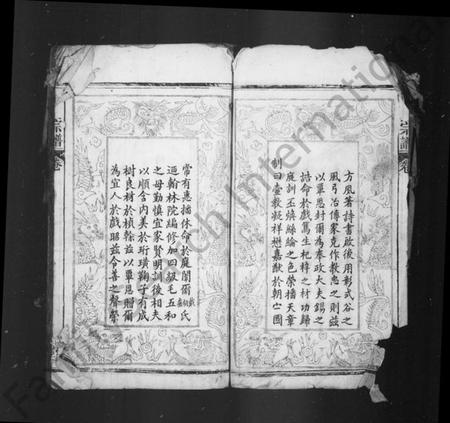 宗譜 卷
方風著詩書啟後用彰式穀之
風弓冶傳家克作教忠之則茲
以覃恩封爾為奉政大夫錫之
誥命於戲篤生杞梓之材功歸
庭訓丕煥絲綸之色榮播天章
制曰壼教凝祥懋嘉猷於朝
常有惠播休命於庭闈爾 氏
迺翰林院編修加四級毛五和
之母勤慎宜家賢明訓後相夫
以順含內美於珩璜鞠子有成
樹良材於楨榦茲以覃恩贈爾
為宜人於戲昭茲令善之聲譽
宗譜 卷
Family Search International